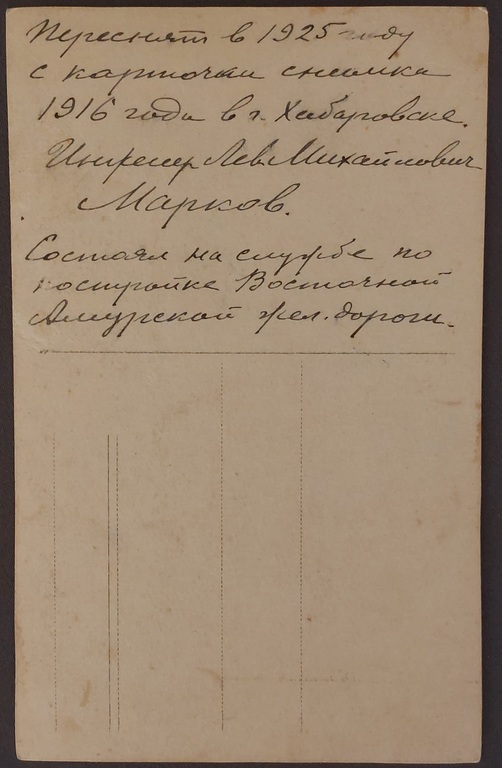 Переснят в 1925 году
с карточки снимка
1916 года в г. Хабаровске.
Инженер Лев Михайлович
Марков.
Состоял на службе по
постройке Восточной
Амурской жел. дороги.